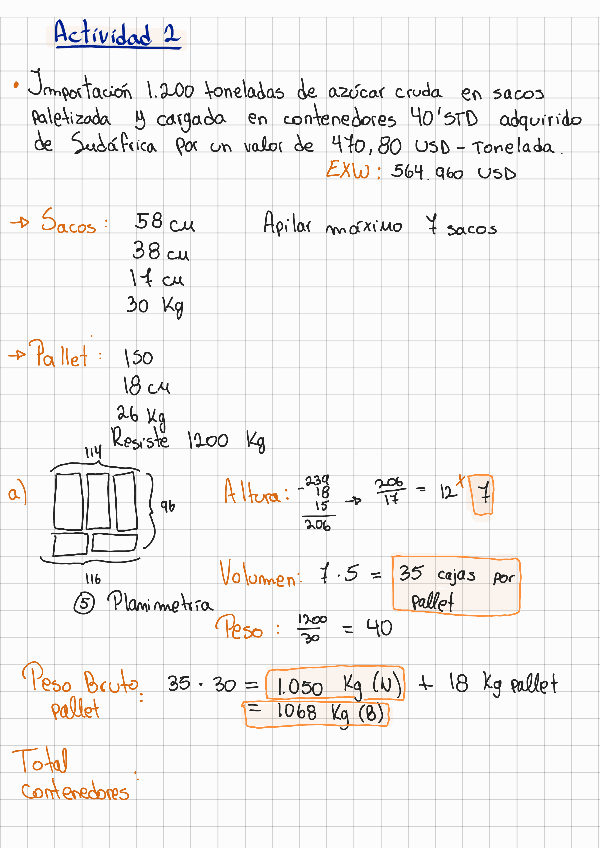 Actividad 2
• Importación 1.200 toneladas de azúcar cruda en sacos
paletizada y cargada en contenedores 40'STD adquirido
de Sudáfrica por un valor de 470,80 USD - Tonelada.
EXW: 564.960 USD
→ Sacos: 58 cm Apilar máximo 7 sacos
38 cm
17 cm
30 Kg
→ Pallet: 150
18 cm
26 Kg
Resiste 1200 Kg
a) 114
96
116
⑤ Planimetría
Altura: -239 → 206/17 = 12 x 7
18
15
206
Volumen: 7 · 5 = 35 cajas por
pallet
Peso: 1200/30 = 40
Peso Bruto pallet: 35 · 30 = 1.050 Kg (N) + 18 Kg pallet
= 1068 Kg (B)
Total
contenedores: